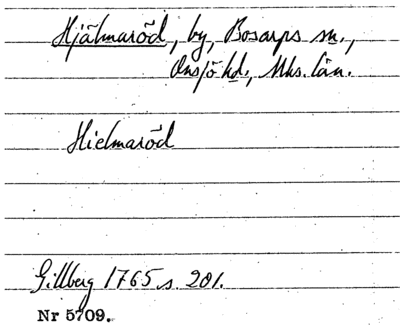 Hjälmaröd, by, Bosarps sn.,
Onsjö hd., Mhs. län.
Hielmaröd
Gillberg 1765 s. 201.
Nr 5709.